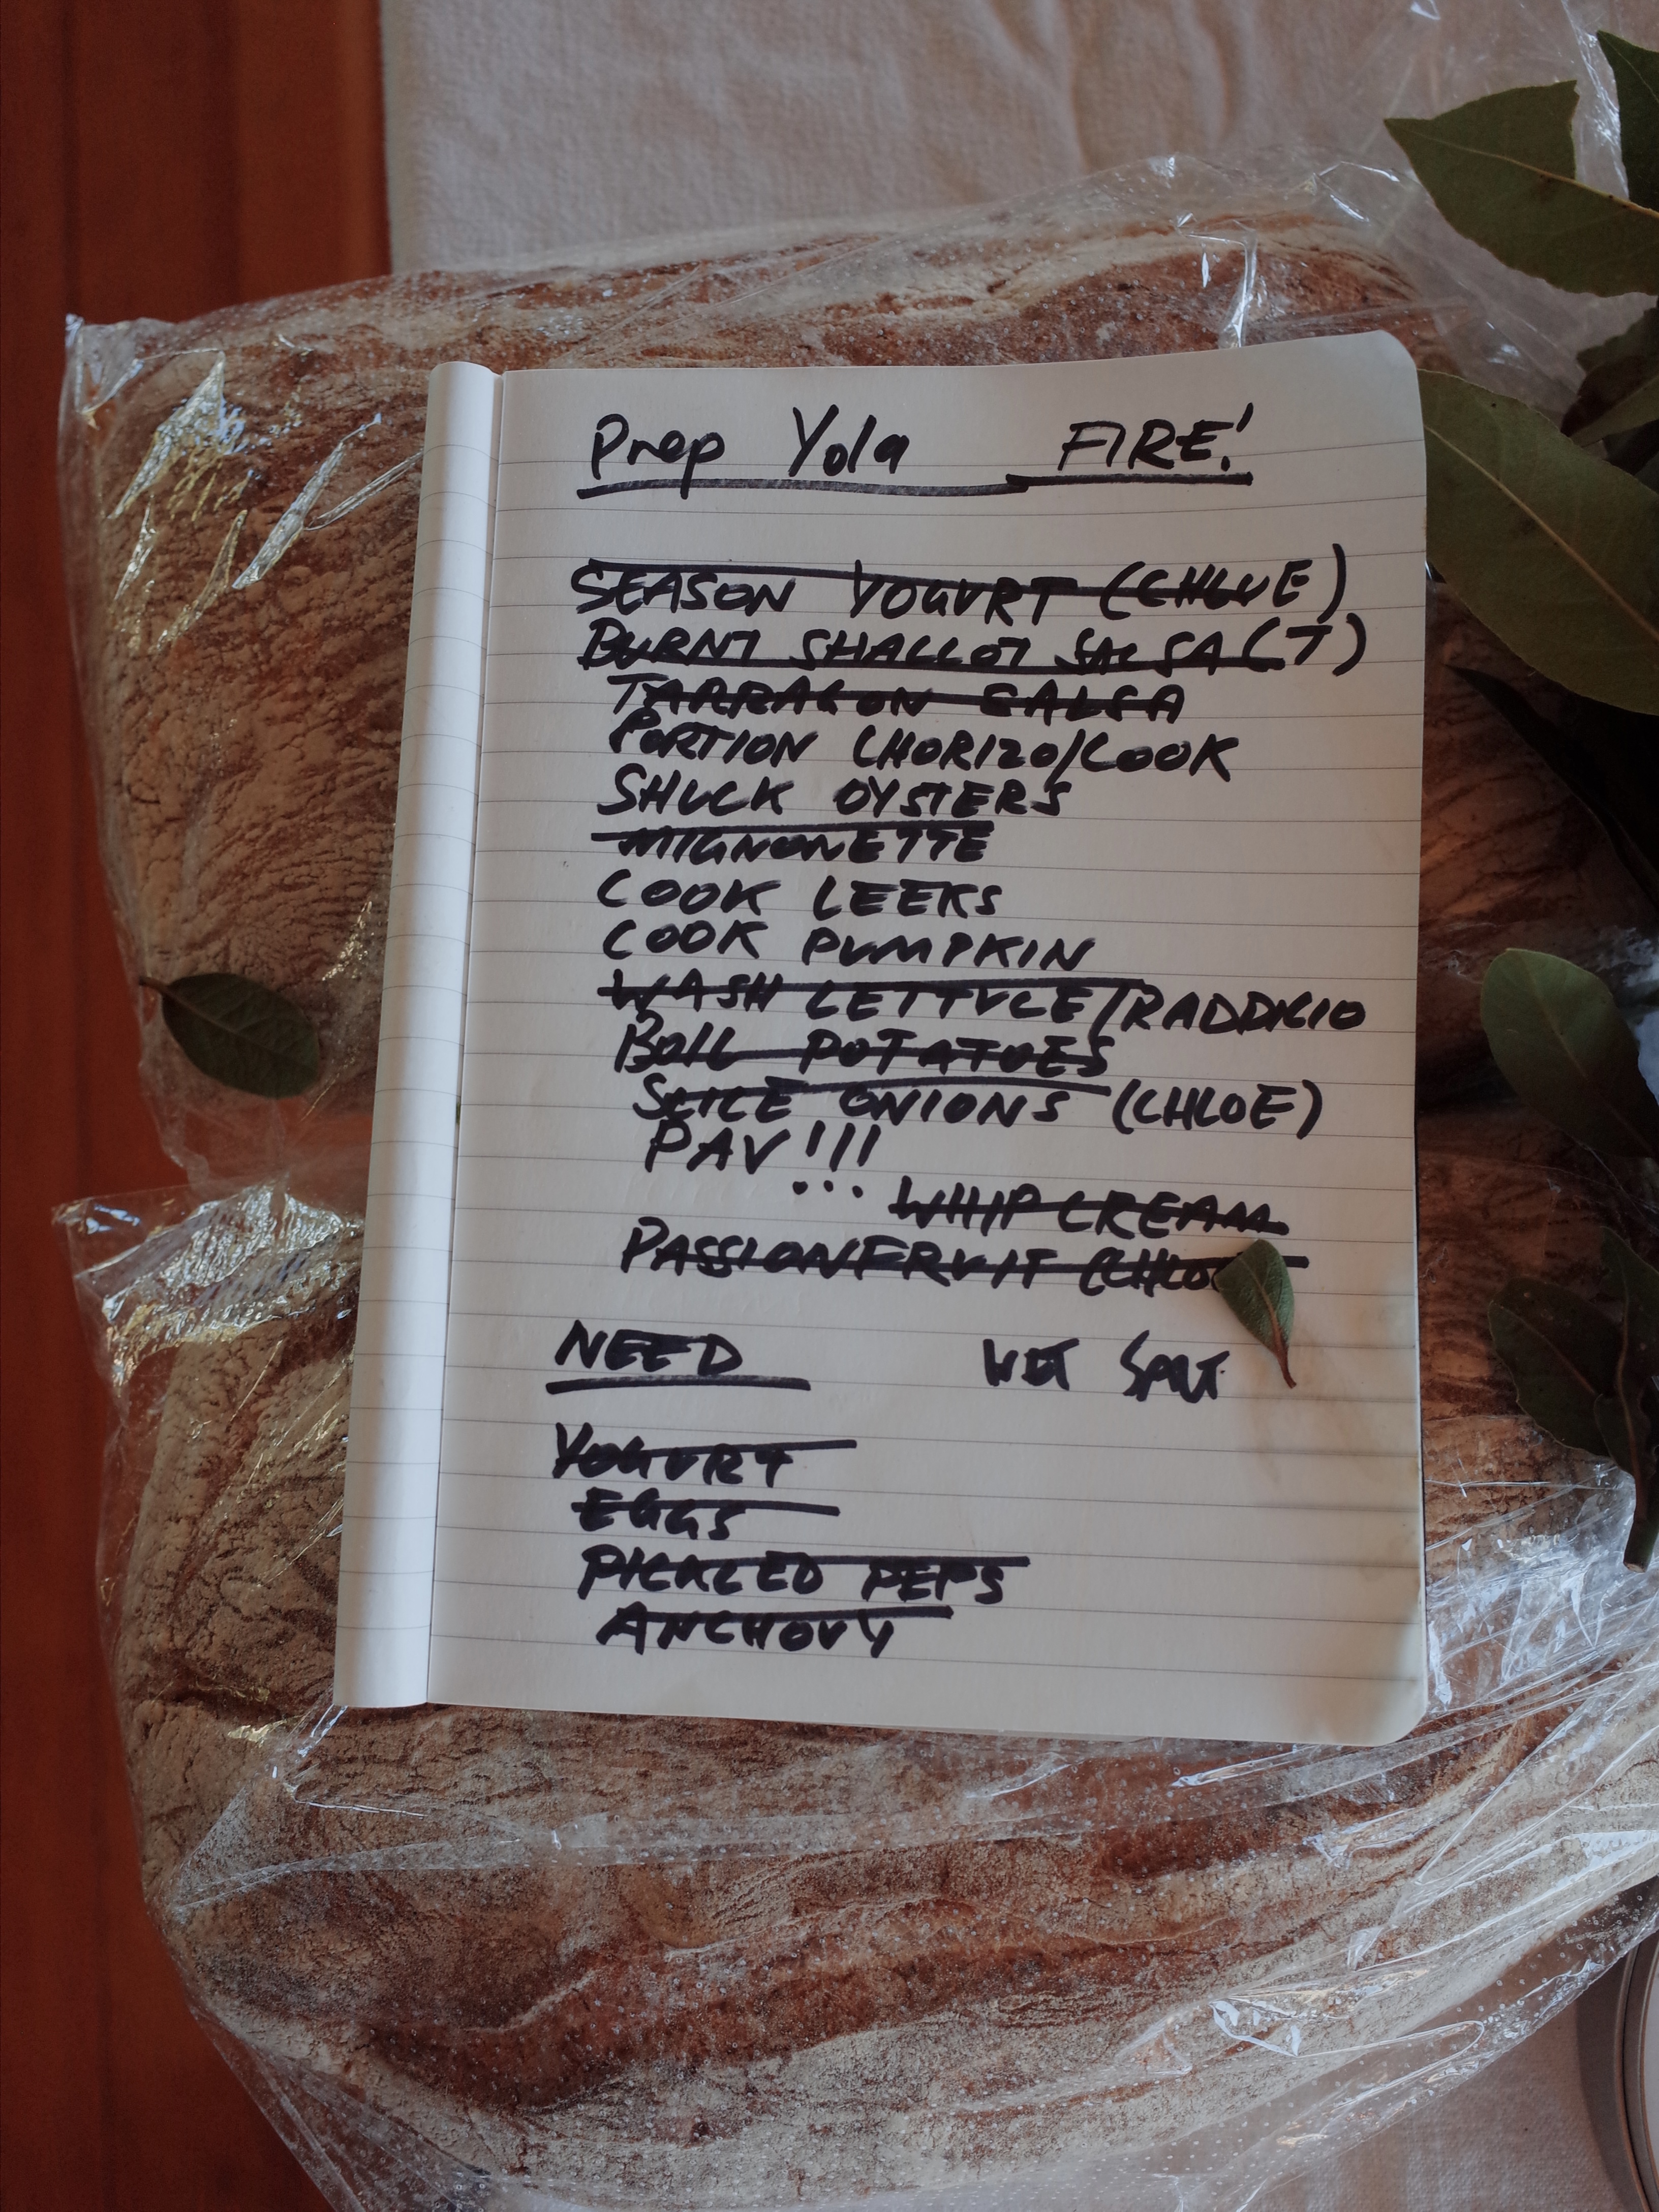 Prep Yola FIRE!
SEASON YOGURT (CHLOE)
BURNT SHALLOT SALSA (T)
TARRAGON SALSA
PORTION CHORIZO/COOK
SHUCK OYSTERS
MIGNONETTE
COOK LEEKS
COOK PUMPKIN
WASH LETTUCE/RADDICIO
BOIL POTATOES
SLICE ONIONS (CHLOE)
PAV!!!
WHIP CREAM
PASSIONFRUIT
NEED
YOGURT
EGGS
PICKLED PEPS
ANCHOVY